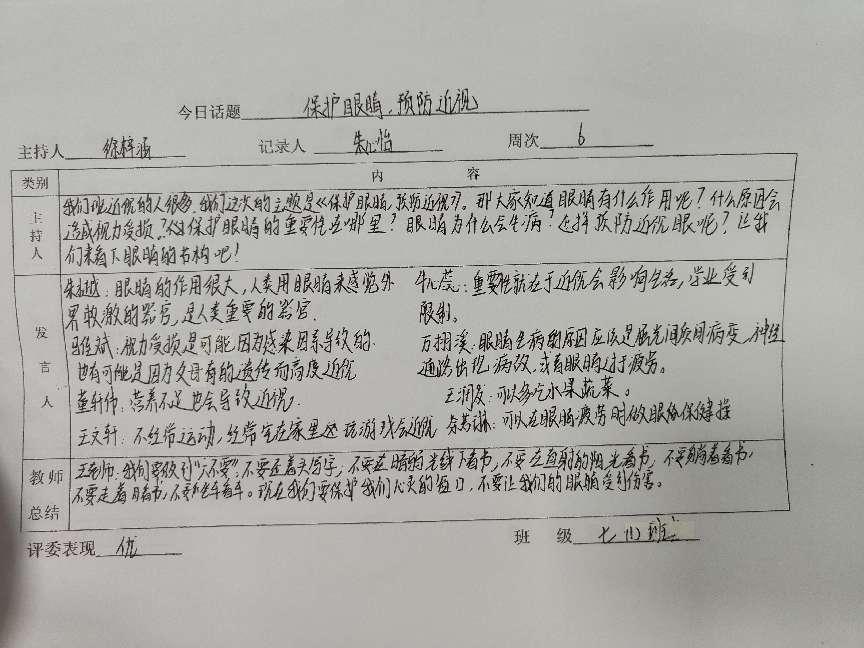 今日话题 保护眼睛，预防近视
主持人 徐梓涵 记录人 朱心怡 周次 6
类别 内容
主持人
我们班近视的人很多，我们这次的主题是《保护眼睛，预防近视》。那大家知道眼睛有什么作用呢？什么原因会
造成视力受损？保护眼睛的重要性在哪里？眼睛为什么会生病？怎样预防近视眼呢？让我
们来看下眼睛的结构吧！
发言人
眼睛的作用很大，人类用眼睛来感觉外
界刺激的器官，是人类重要的器官.
视力受损是可能因为感染因素导致的.
也有可能是因为父母有的遗传而高度近视
董轩伟：营养不足也会导致近视，
王文轩：不经常运动，经常宅在家里还玩游戏会近视
重要性就在于近视会影响生活，学业受到
限制。
眼睛生病的原因应该是屈光间质周病变，神经
通路出现病变，或者眼睛过于疲劳。
可以多吃水果蔬菜。
可以在眼睛疲劳时做眼保健操
教师总结
王老师：我们要做到“六不要”：不要歪着头写字，不要在暗的光线下看书，不要在直射的阳光看书，不要躺着看书，
不要走着看书，不要坐车看书。现在我们要保护我们心灵的窗口，不要让我们的眼睛受到伤害。
评委表现 优 班级 七(1)班